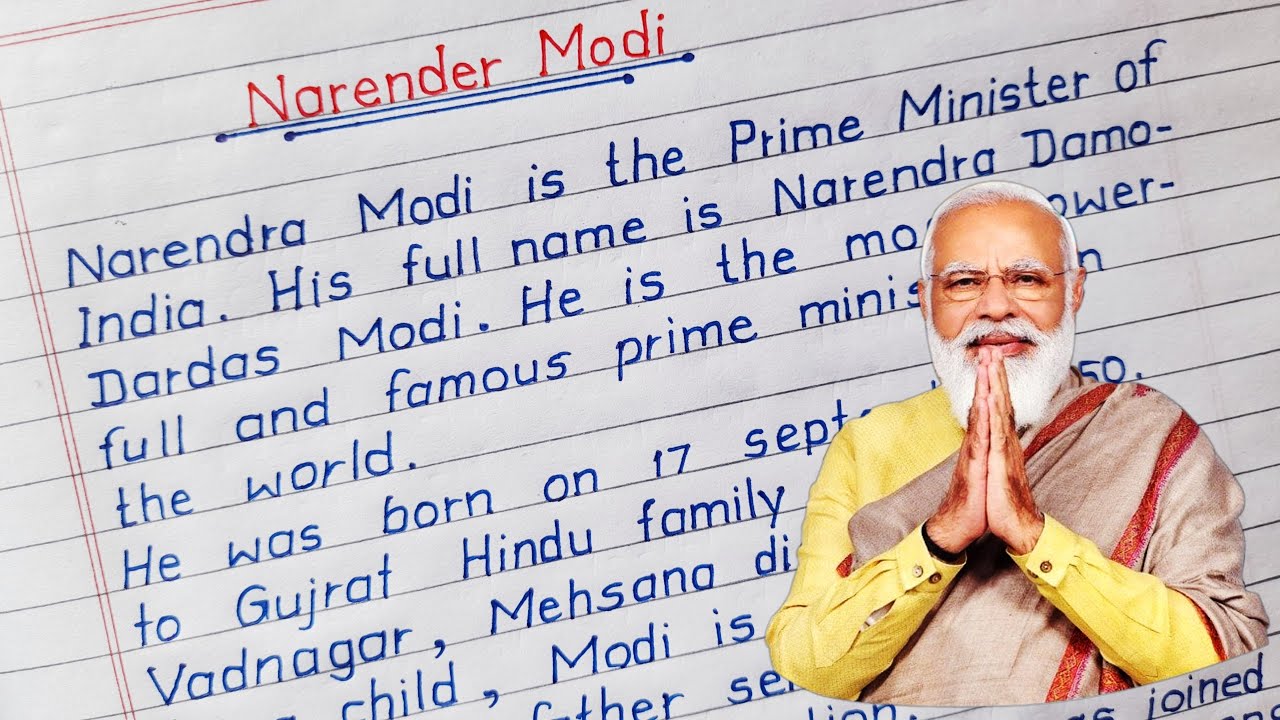 Narender Modi
Narendra Modi is the Prime Minister of
India. His full name is Narendra Damo-
Dardas Modi. He is the
full and famous prime
the world.
He was born on 17
to Gujrat Hindu family
Vadnagar, Mehsana
child, Modi is
joined